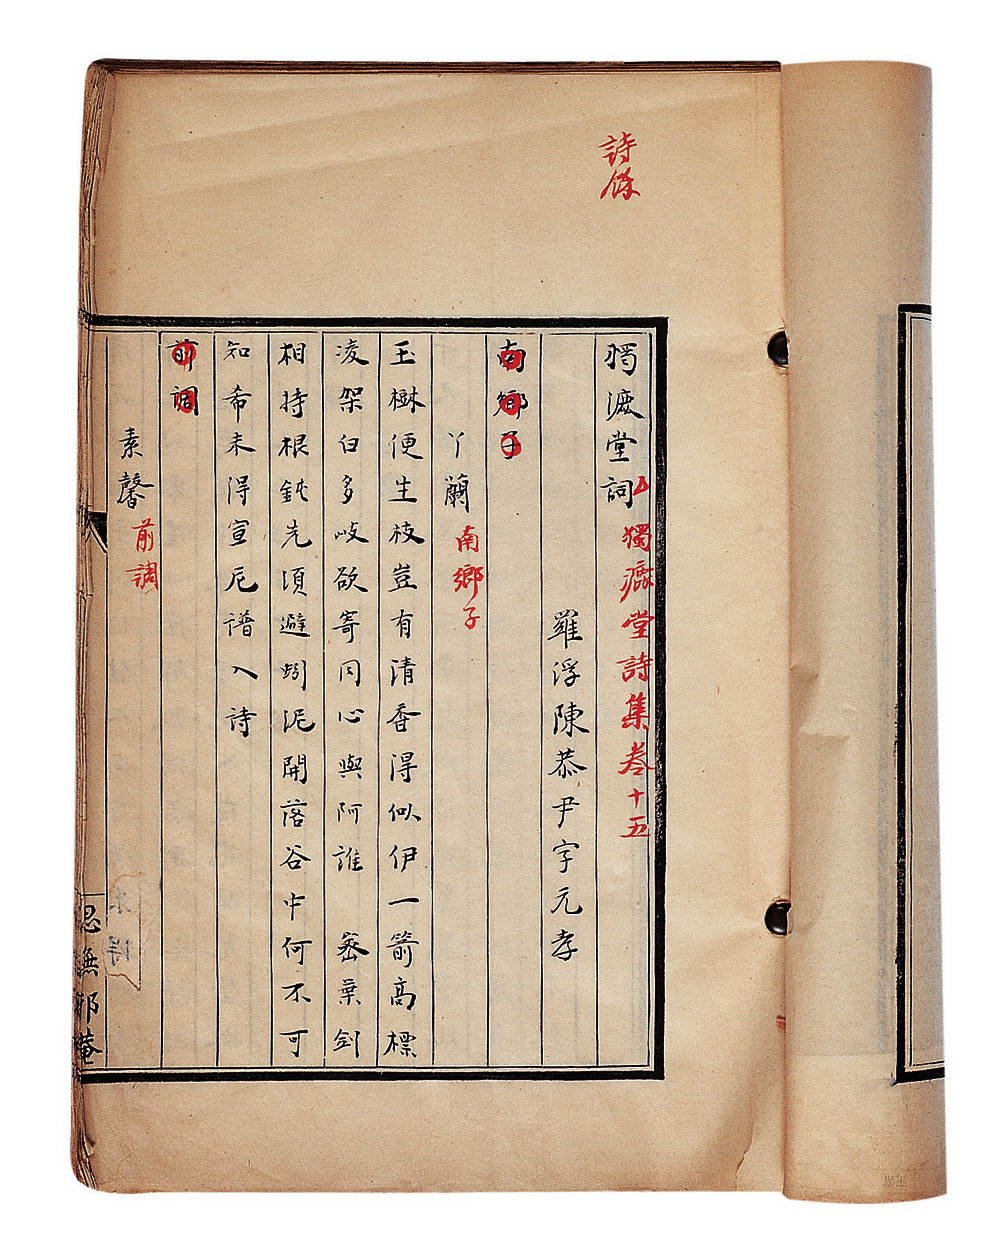 詩餘
獨漉堂詞
獨漉堂詩集卷十五
羅浮陳恭尹字元孝
南鄉子
丫蘭
南鄉子
玉樹便生枝豈有清香得似伊一箭高標
凌架白多岐欲寄同心與阿誰 密葉劍
相持根鈍先須避蚓泥開落谷中何不可
知希未得宣尼譜入詩
前調
素馨
前調
思無邪庵